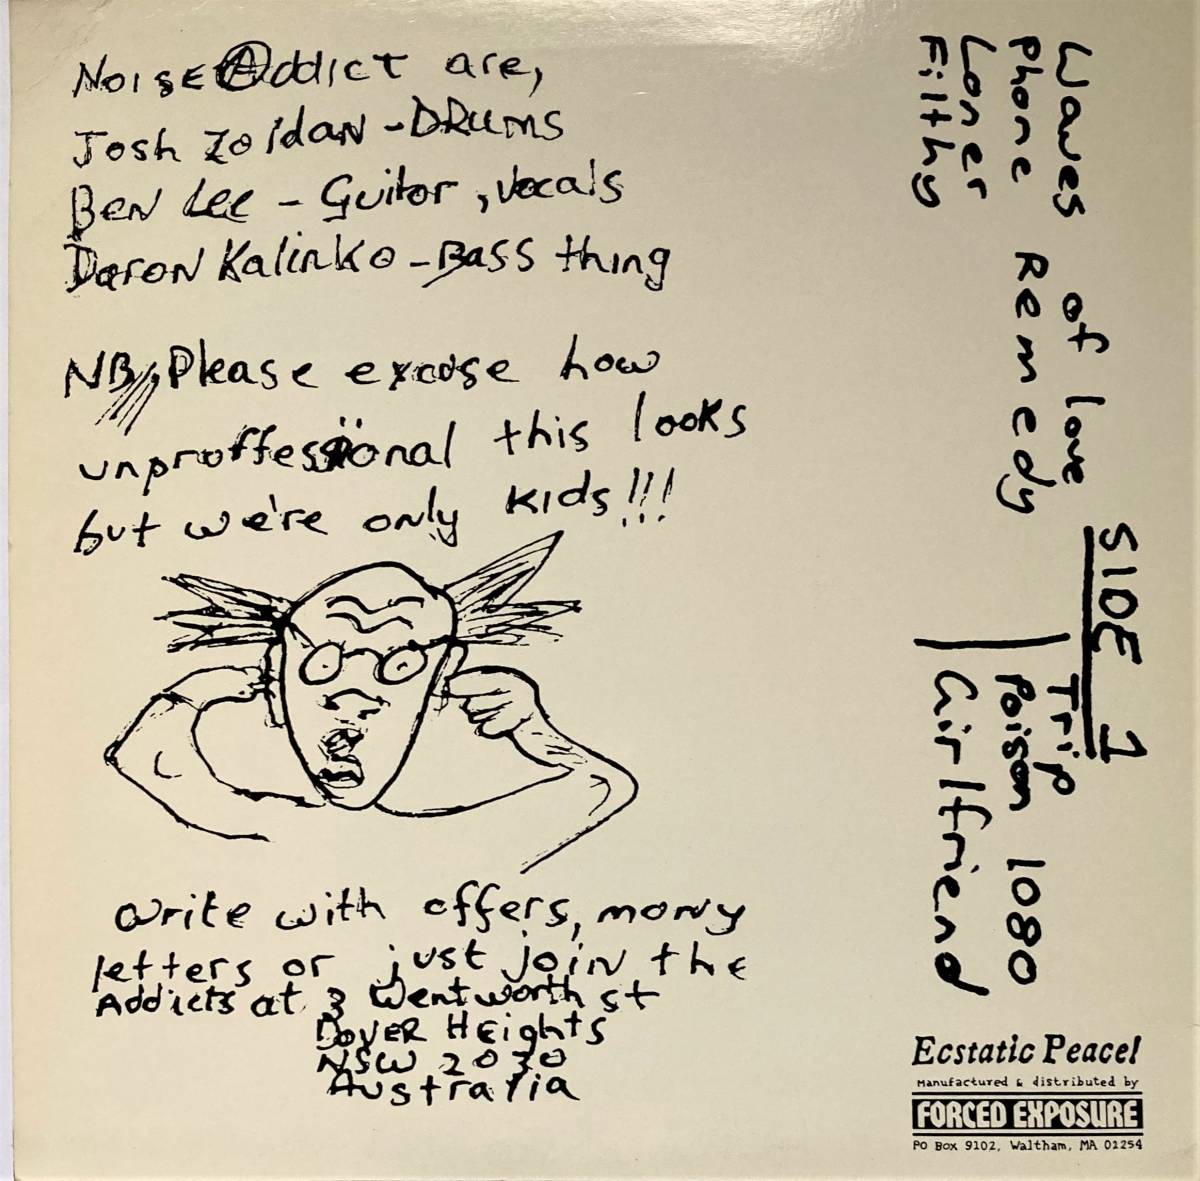 NOISE Addict are,
Josh Zoldan - DRums
BEN LEE - Guitar, vocals
Daron Kalinko - Bass thing
NB, Please excuse how
unproffessional this looks
but we're only kids!!!
write with offers, mony
letters or just join the
Addicts at 3 Wentworth st
DOVER HEights
NSW 2030
Australia
SIDE 1
Waves of love
Phone Remedy
Loner
Filthy
Trip
Poison 1080
Girlfriend
Ecstatic Peace!
Manufactured & distributed by
FORCED EXPOSURE
PO Box 9102, Waltham, MA 01254